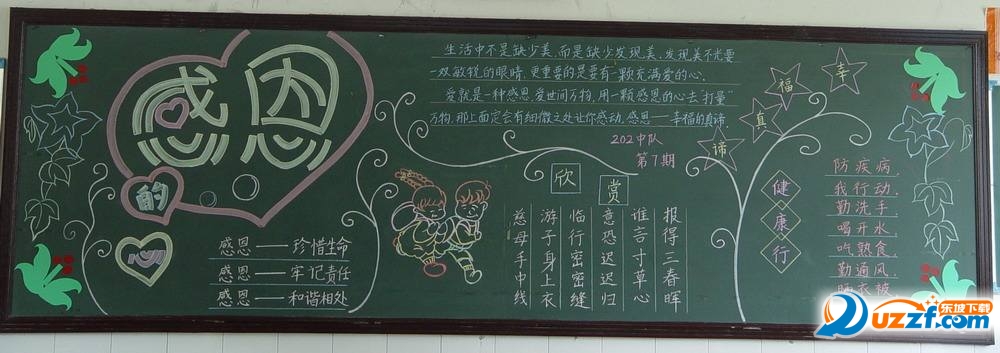 感恩
的
心
感恩——珍惜生命
感恩——牢记责任
感恩——和谐相处
生活中不是缺少美,而是缺少发现美,发现美不光要
一双敏锐的眼睛,更重要的是要有一颗充满爱的心,
爱就是一种感恩,爱世间万物,用一颗感恩的心去"打量"
万物,那上面定会有细微之处让你感动,感恩——幸福的真谛
202中队
第7期
欣赏
慈母手中线
游子身上衣
临行密密缝
意恐迟迟归
谁言寸草心
报得三春晖
幸福真谛
健康行
防疾病,
我行动,
勤洗手
喝开水
吃熟食,
勤通风,
晒衣被
东坡下载
uzzf.com